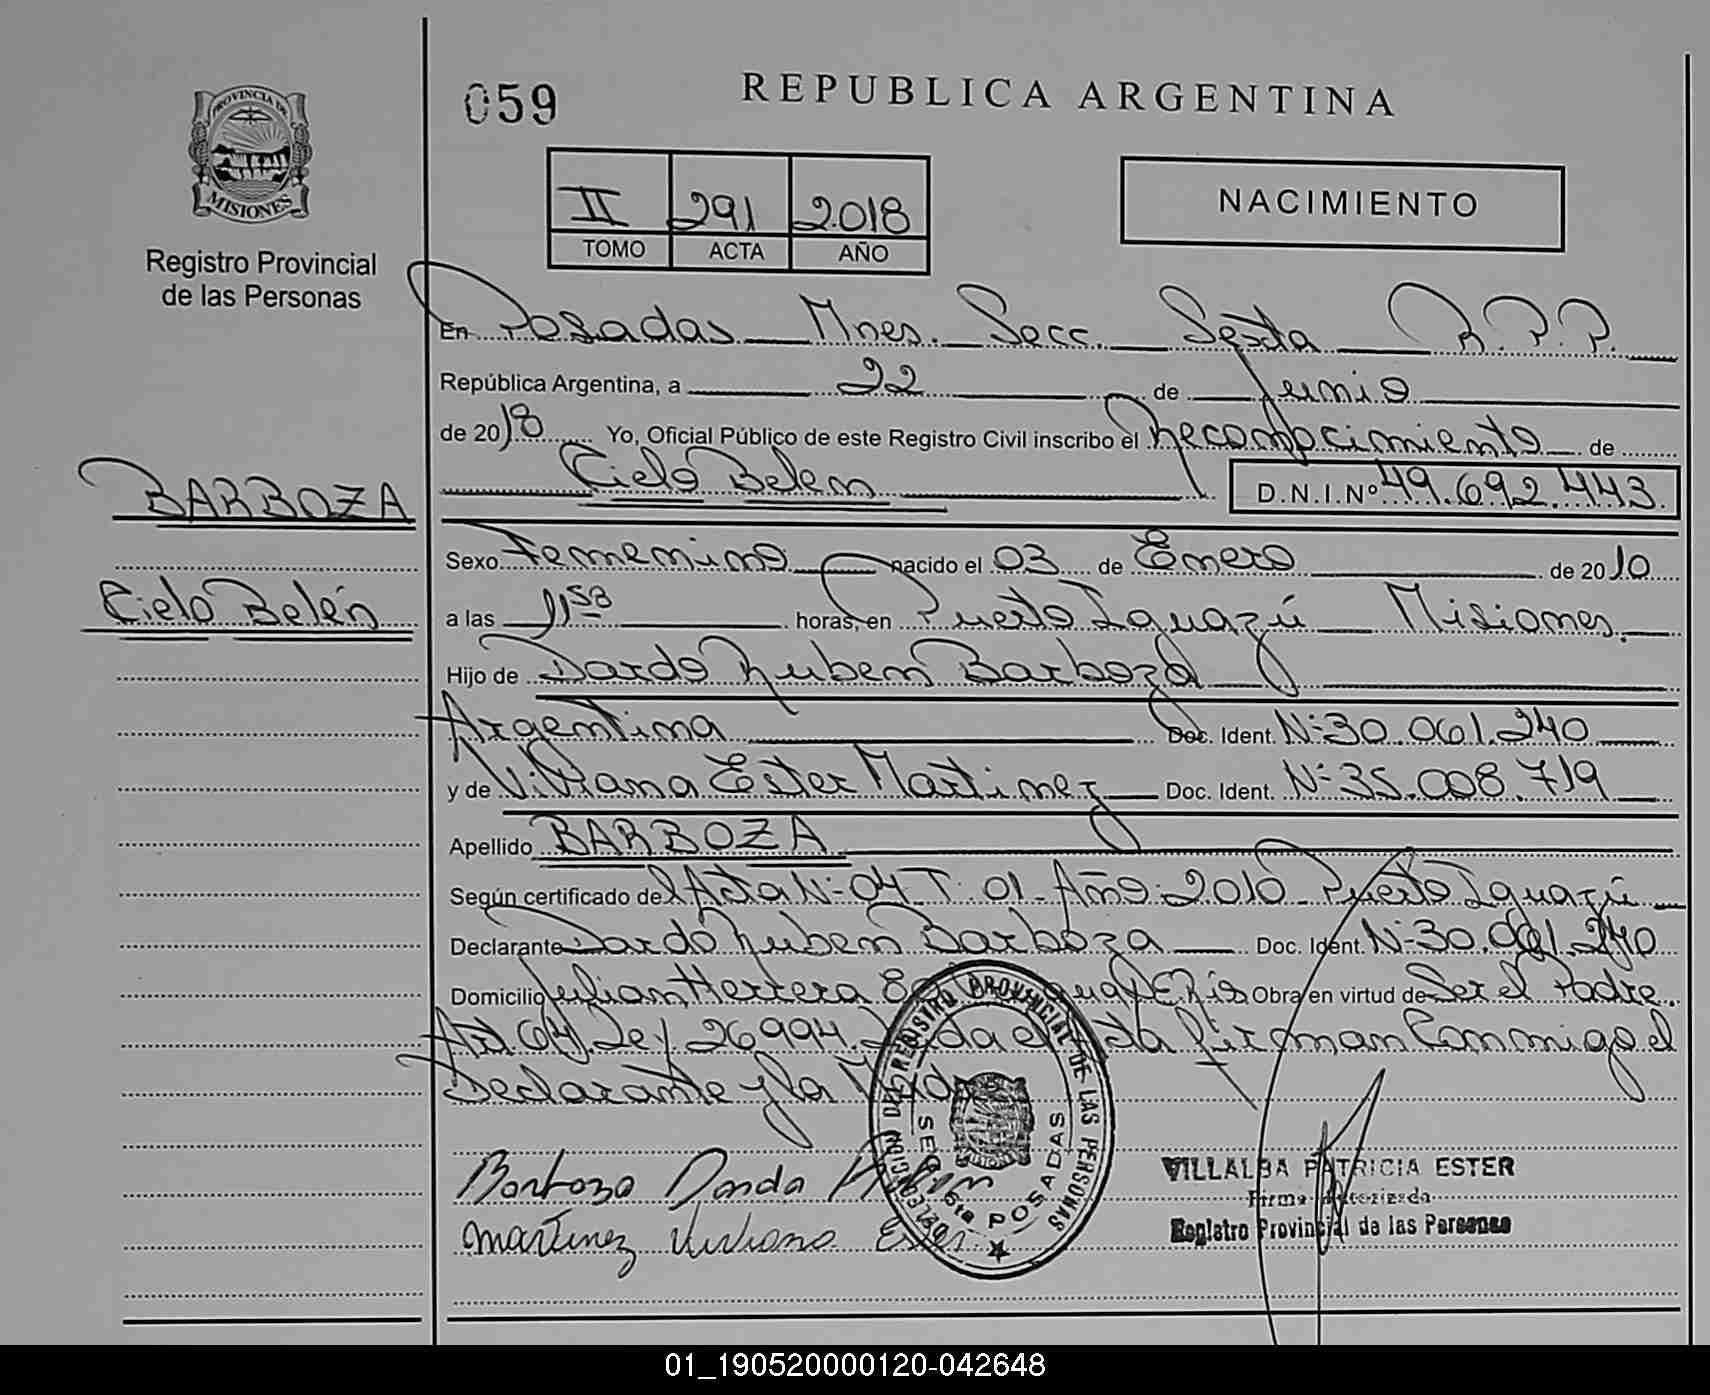 PROVINCIA DE
MISIONES
Registro Provincial
de las Personas
BARBOZA
Cielo Belén
059
REPUBLICA ARGENTINA
II 291 2.018
TOMO ACTA AÑO
NACIMIENTO
En Posadas Mnes. Secc. Sexta R.P.P.
República Argentina, a 22 de Junio
de 2018 Yo, Oficial Público de este Registro Civil inscribo el Reconocimiento de
Cielo Belen D.N.I.Nº 49.692.443.
Sexo Femenino nacido el 03 de Enero de 2010
a las 11 horas, en Puerto Iguazú Misiones.
Hijo de Dardo Ruben Barboza
Argentina Doc. Ident. Nº 30.061.240
y de Viviana Ester Martinez Doc. Ident. Nº 35.008.719
Apellido BARBOZA
Según certificado del Acta Nº 04 T. 01 - Año: 2010 - Puerto Iguazú
Declarante Dardo Ruben Barboza Doc. Ident. Nº 30.061.240
Domicilio Julian Herrera Obra en virtud de Ser el Padre.
Art. 64 Ley 26994. firman Conmigo el
Declarante y la
Barboza Dardo Ruben
Martinez Viviana Ester
DELEGACION DEL REGISTRO PROVINCIAL DE LAS PERSONAS
SECC. 6ta POSADAS
VILLALBA PATRICIA ESTER
Firma Autorizada
Registro Provincial de las Personas
01_190520000120-042648